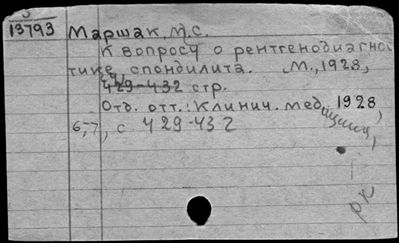 13793 Маршак, М.С.
К вопросу о рентгенодиагнос
тике спондилита. М., 1928,
429-432 стр.
Отд. отт.: Клинич. медицина, 1928,
6,-7, с. 429-432
рк